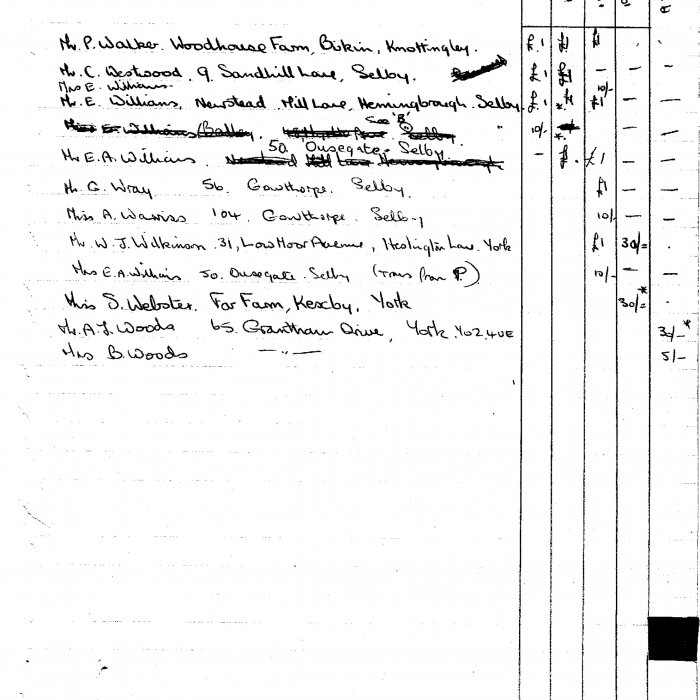 Mr. P. Walker. Woodhouse Farm, Birkin, Knottingley. £1 £1 £1
Mr. C. Westwood, 9, Sandhill Lane, Selby. £1 £1 — — —
Mrs E. Williams. 10/-
Mr. E. Williams, Newstead Mill Lane, Hemingbrough. Selby. £1 * £1 £1 — —
See 'B'
Mrs E. Williams (Batley, Selby. 10/-
50. Ousegate. Selby
Mr E. A. Williams. Newstead Mill Lane Hemingbrough - £1. £1 — —
Mr. G. Wray 56. Gowthorpe. Selby. £1 — —
Miss A. 104, Gowthorpe. Selby 10/- — —
Mr. W. J. Wilkinson. 31, Low Moor Avenue, Heslington Lane. York £1 30/=
Mrs E. A. Williams 50. Ousegate. Selby (Trans from P.) 10/- — —
Miss S. Webster. Far Farm, Kexby, York 30/=*
Mr. A. J. Woods 65. Grantham Drive, York. YO2 4UE 30/-*
Mrs B. Woods — " — 5/-